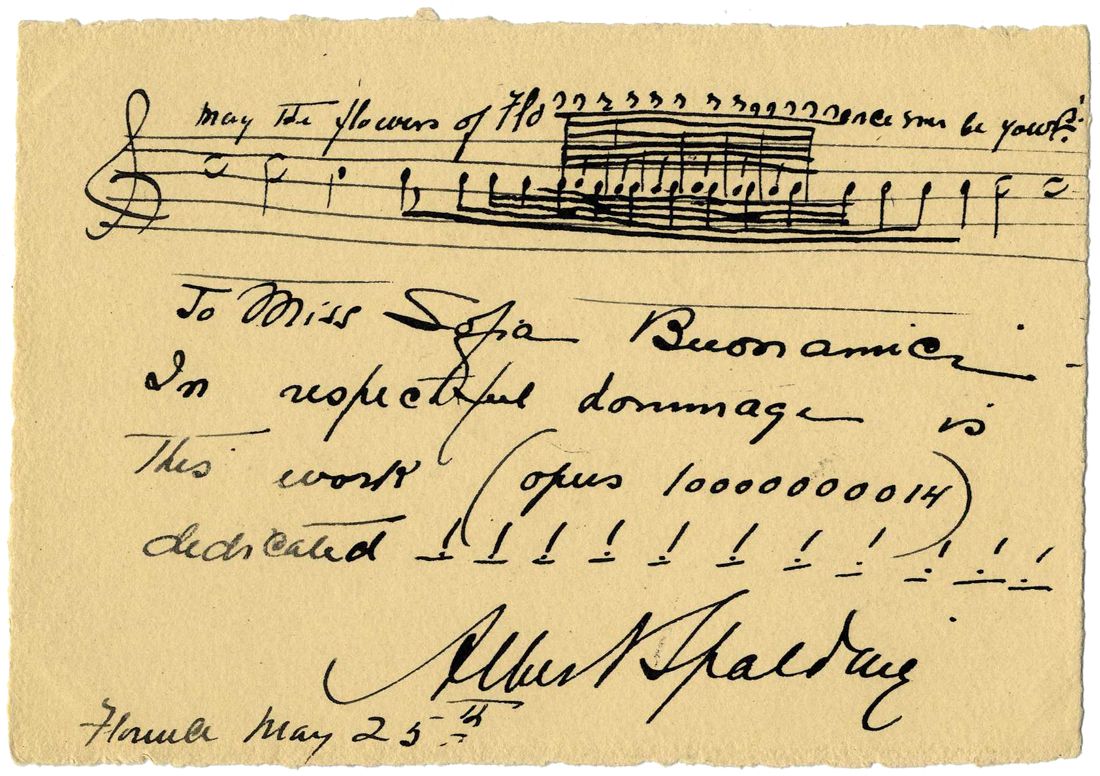 May the flowers of Florrrrrrrrrrrrrrence ever be yours?!
To Miss Sofia Buonamici -
In respectful dommage is
This work (opus 100000000014)
dedicated ! ! ! ! ! ! ! ! ! ! !
Albert Spalding
Florence May 25th